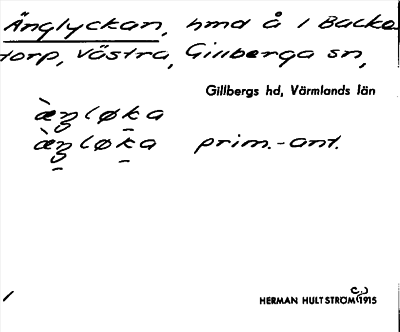 Änglyckan, hmd å 1 Backe
torp, Västra, Gillberga sn,
Gillbergs hd, Värmlands län
æ̀ŋløka
æ̀ŋløka prim.-ant.
HERMAN HULTSTRÖM 1915